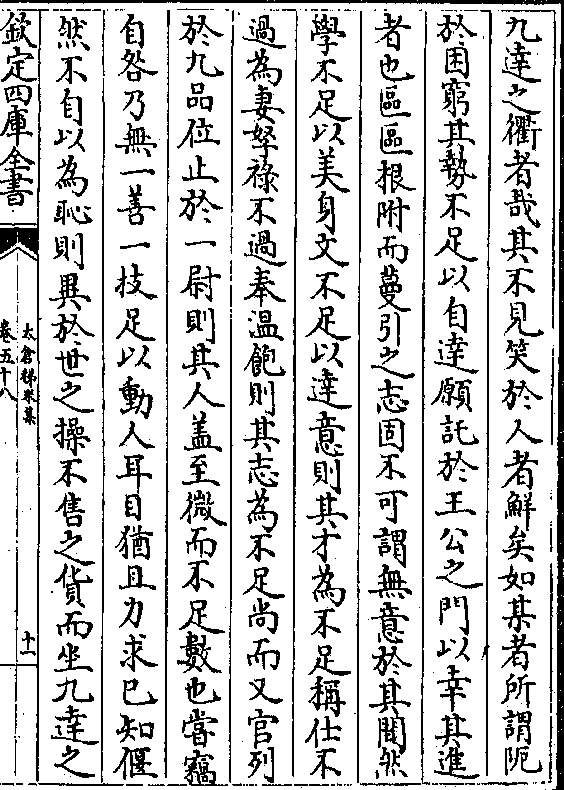 九逹之衢者哉其不見笑於人者鮮矣如某者所謂阨
於困窮其勢不足以自逹願託於王公之門以幸其進
者也區區根附而蔓引之志固不可謂無意於其間然
學不足以美身文不足以逹意則其才為不足稱仕不
過為妻孥祿不過奉温飽則其志為不足尚而又官列
於九品位止於一尉則其人盖至微而不足數也嘗竊
自咎乃無一善一技足以動人耳目猶且力求已知偃
然不自以為恥則異於世之操不售之貨而坐九逹之
欽定四庫全書
太倉稊米集
卷五十八
十一